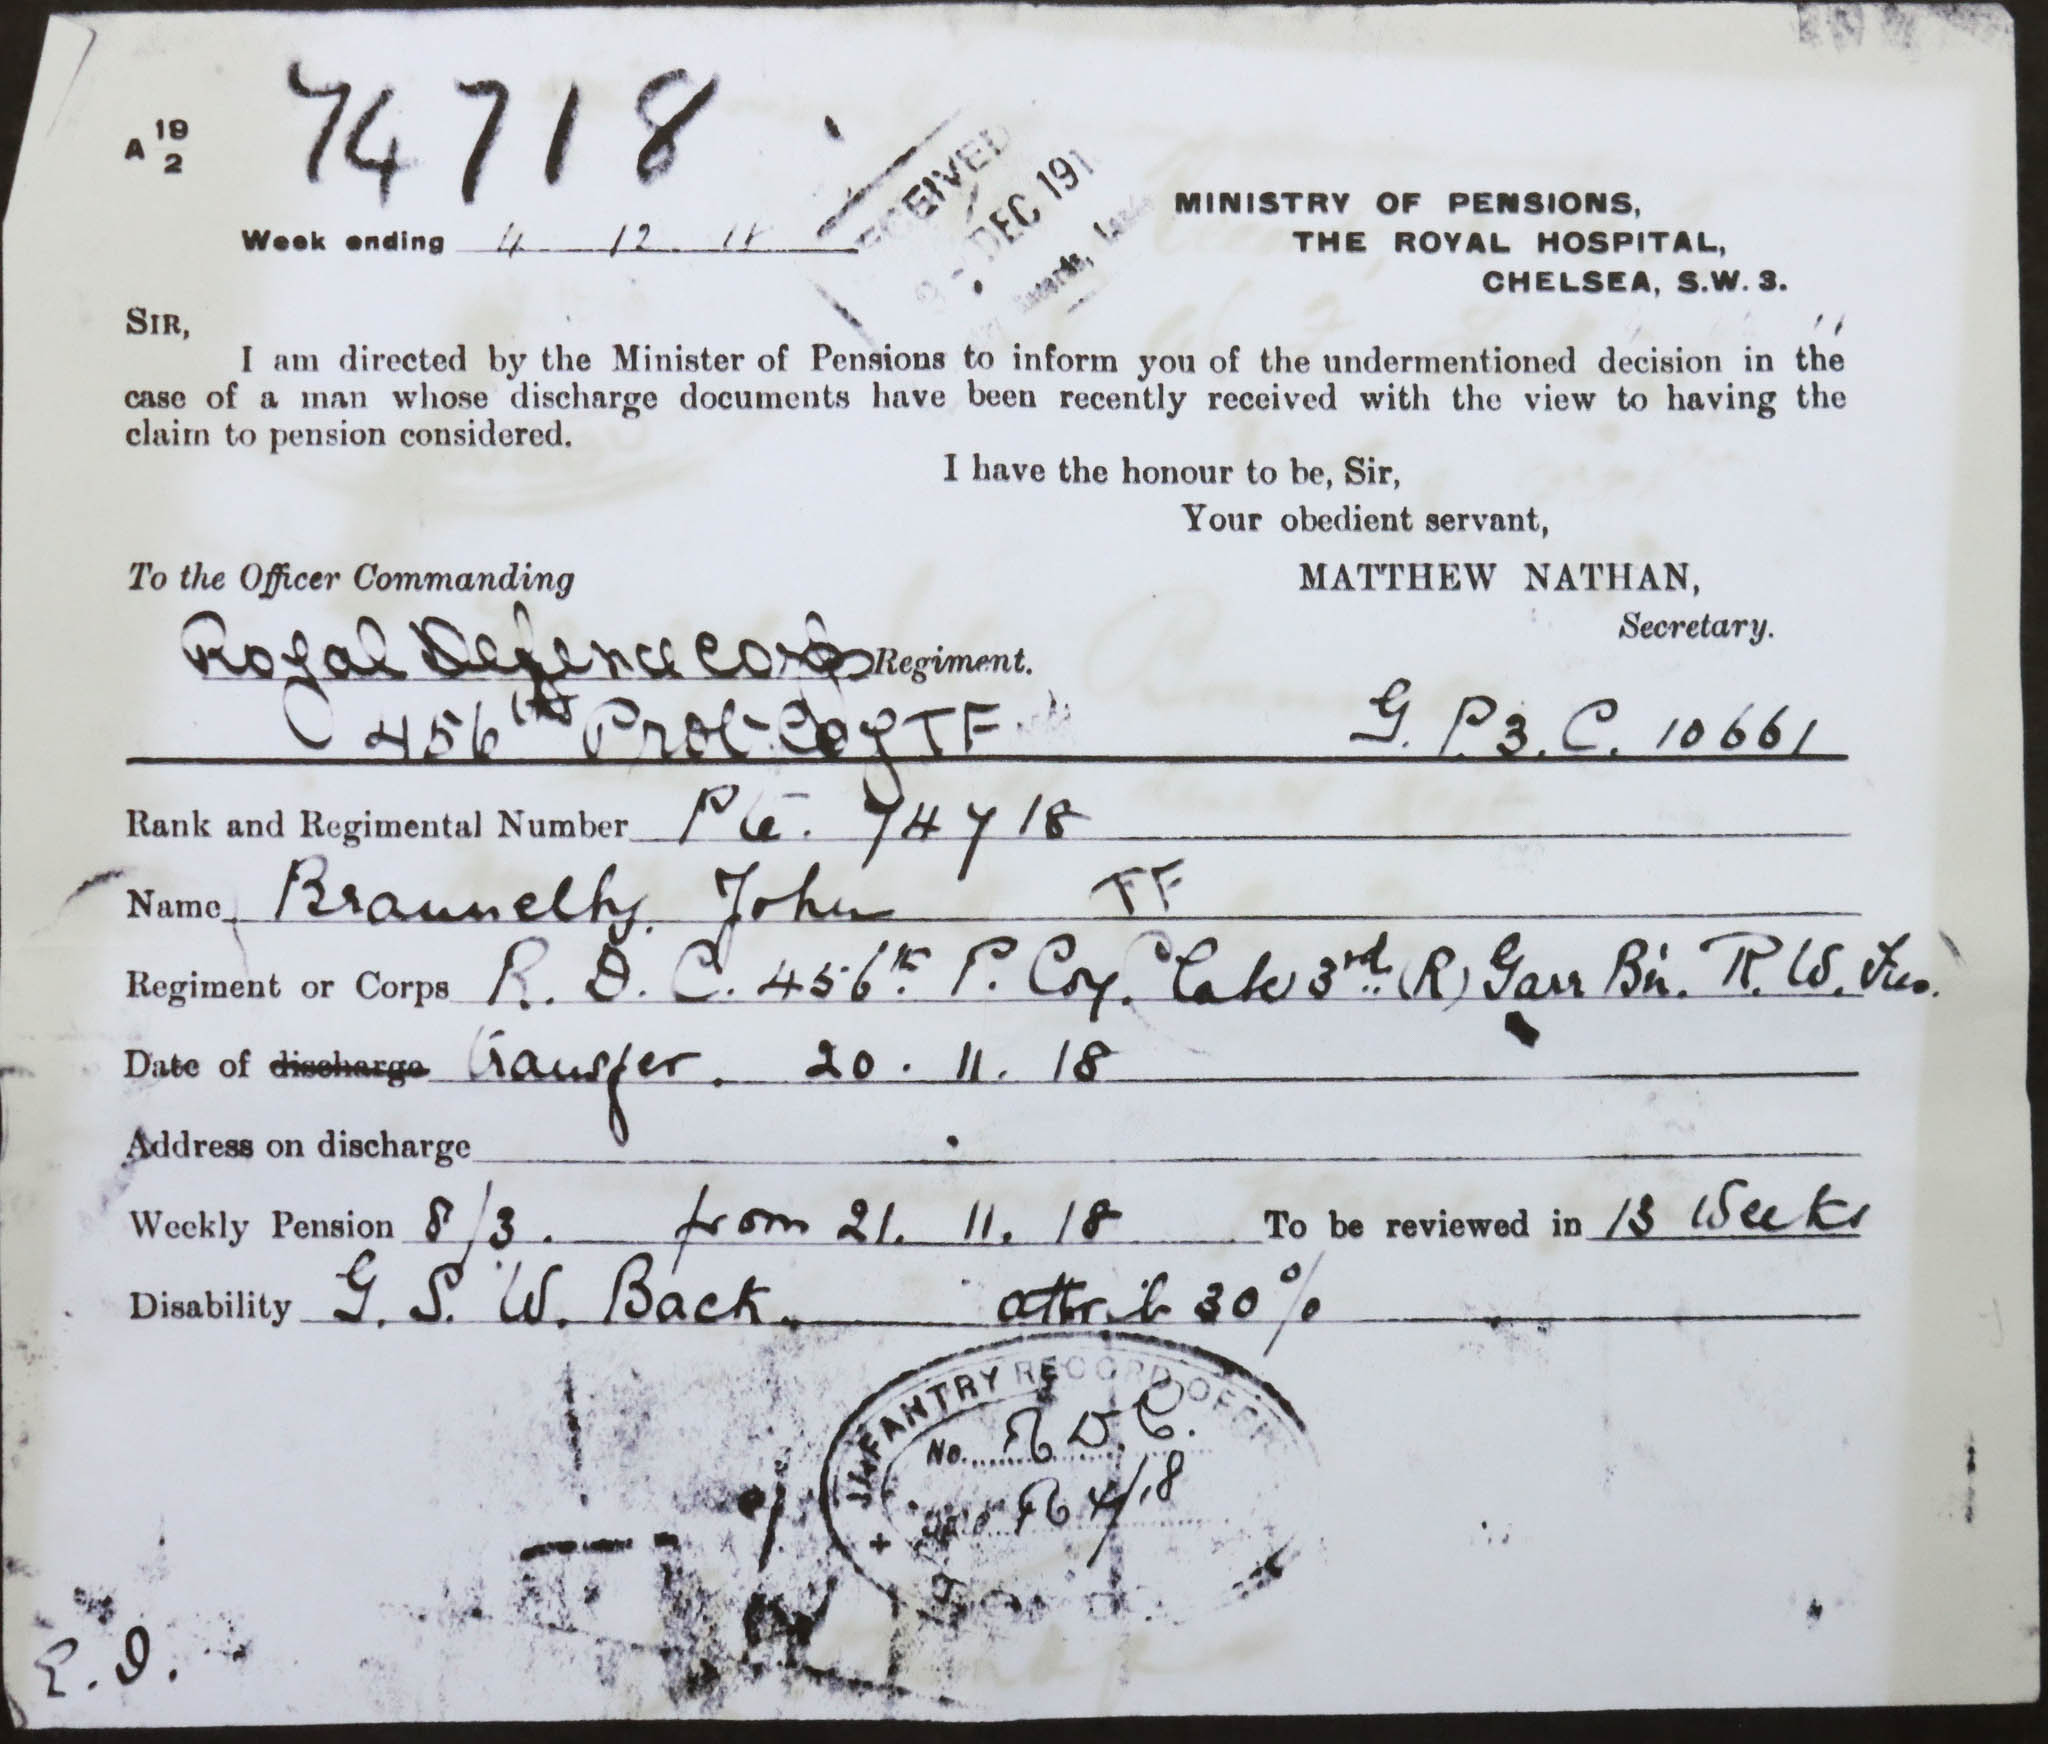 A 19/2
74718
Week ending 4 12 18
RECEIVED
DEC 191
MINISTRY OF PENSIONS,
THE ROYAL HOSPITAL,
CHELSEA, S.W. 3.
SIR,
I am directed by the Minister of Pensions to inform you of the undermentioned decision in the
case of a man whose discharge documents have been recently received with the view to having the
claim to pension considered.
I have the honour to be, Sir,
Your obedient servant,
MATTHEW NATHAN,
Secretary.
To the Officer Commanding
Royal Defence Corps Regiment.
456th Prot. Coy TF
G. P. 3. C. 10661
Rank and Regimental Number Pte. 74718
Name Braunelhy. John TF
Regiment or Corps R. D. C. 456th P. Coy. late 3rd (R) Garr Bn. R. W. Fus.
Date of discharge transfer. 20. 11. 18
Address on discharge
Weekly Pension 8/3. from 21. 11. 18 To be reviewed in 13 Weeks
Disability G. S. W. Back. attrib 30%
INFANTRY RECORD OFFICE
No. R D. C.
/18